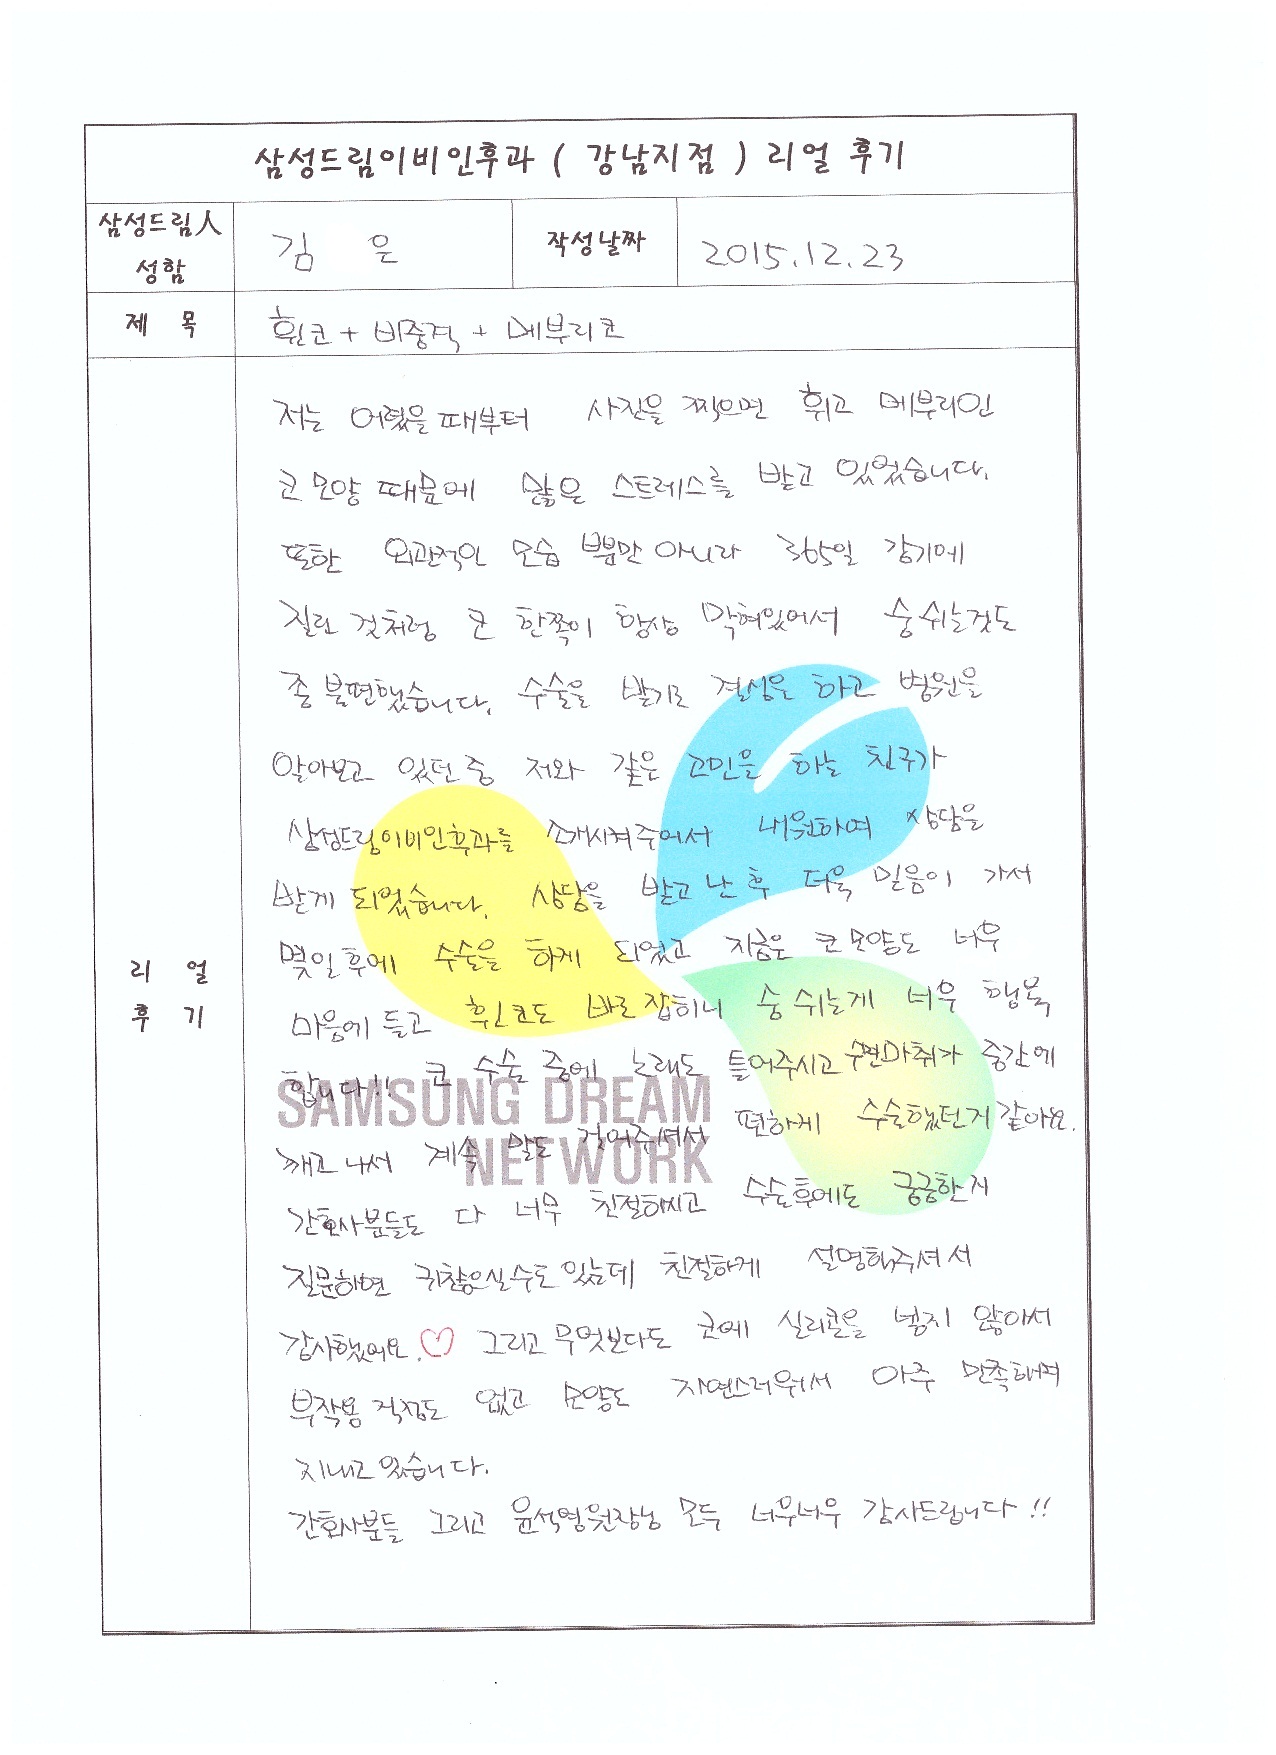 삼성드림이비인후과 ( 강남지점 ) 리얼 후기
삼성드림人 성함
김 은
작성날짜
2015.12.23
제 목
휜코 + 비중격 + 메부리코
리 얼 후 기
저는 어렸을때부터 사진을 찍으면 휘고 메부리인
코모양 때문에 많은 스트레스를 받고 있었습니다.
또한 외관적인 모습 뿐만 아니라 365일 감기에
질린 것처럼 코 한쪽이 항상 막혀있어서 숨 쉬는것도
좀 불편했습니다. 수술을 받기로 결심을 하고 병원을
알아보고 있던 중 저와 같은 고민을 하는 친구가
삼성드림이비인후과를 소개시켜주어서 내원하여 상담을
받게 되었습니다. 상담을 받고 난 후 더욱 믿음이 가서
몇일후에 수술을 하게 되었고 지금은 코모양도 너무
마음에 들고 휜코도 바로 잡히니 숨 쉬는게 너무 행복
합니다!! 코 수술 중에 노래도 틀어주시고 수면마취가 중간에
깨고 나서 계속 말도 걸어주셔서 편하게 수술했던거 같아요.
간호사분들도 다 너무 친절하시고 수술후에도 궁금한거
질문하면 귀찮으실수도 있는데 친절하게 설명해주셔서
감사했어요.♡ 그리고 무엇보다도 코에 실리콘을 넣지 않아서
부작용 걱정도 없고 모양도 자연스러워서 아주 만족해하며
지내고 있습니다.
간호사분들 그리고 윤석영원장님 모두 너무너무 감사드립니다!!
SAMSUNG DREAM
NETWORK